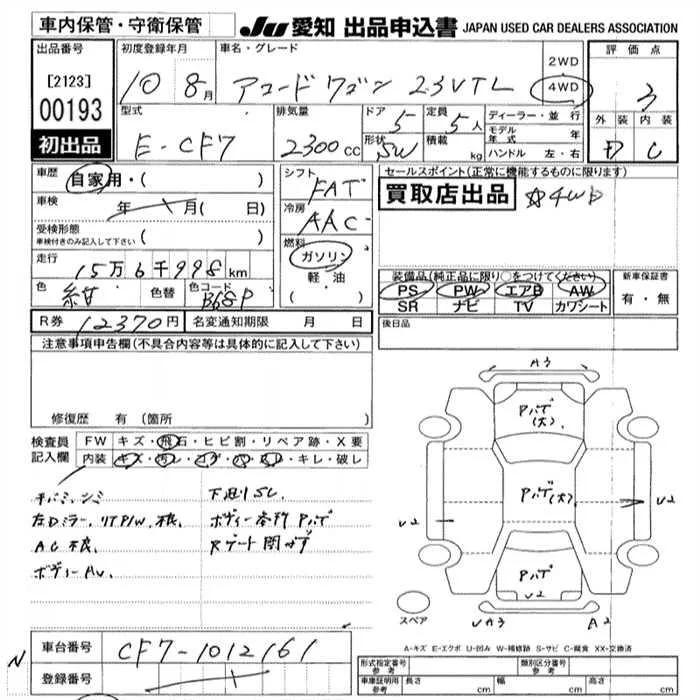 車内保管・守衛保管
JU 愛知 出品申込書 JAPAN USED CAR DEALERS ASSOCIATION
出品番号 [2123] 00193 初出品
初度登録年月 10 8月
車名・グレード アコードワゴン 2.3VTL
2WD 4WD
評価点 3
外装 内装 C
型式 E-CF7
排気量 2300cc
ドア 5
形状 SW
定員 5人
積載 kg
ディーラー・並行
モデル年式 年
ハンドル 左・右
車歴 自家用・( )
車検 年 月( 日)
受検形態 車検付きのみ記入して下さい ( )
走行 15万6千998km
色 紺 色替 色コード B68P
シフト FAT
冷房 AAC
燃料 ガソリン・軽・油・( )
セールスポイント(正常に機能するものに限ります)
買取店出品 ☆4WD
装備品(純正品に限り○をつけてください)
PS PW エアB AW
SR ナビ TV カワシート
新車保証書 有・無
R券 12370円 名変通知期限 月 日
後日品
注意事項申告欄(不具合内容等は具体的に記入して下さい)
修復歴 有 (箇所
検査員記入欄
FW キズ・飛石・ヒビ割・リペア跡・X要
内装 キズ・汚レ・コゲ・ ・ ・キレ・破レ
左Dミラー、 P/W、不良
AC不良
下廻りSC
Rゲート
A3
Pハゲ(大)
Pハゲ(大)
U2
U2
Pハゲ
U2
UA3
A2
スペア
A-キズ E-エクボ U-凹み W-補修跡 S-サビ C-腐食 XX-交換済
N
車台番号 CF7-1012161
登録番号
形式指定番号 参考
類別区分番号 参考
車庫証明用 参考 長さ cm 幅 cm 高さ cm